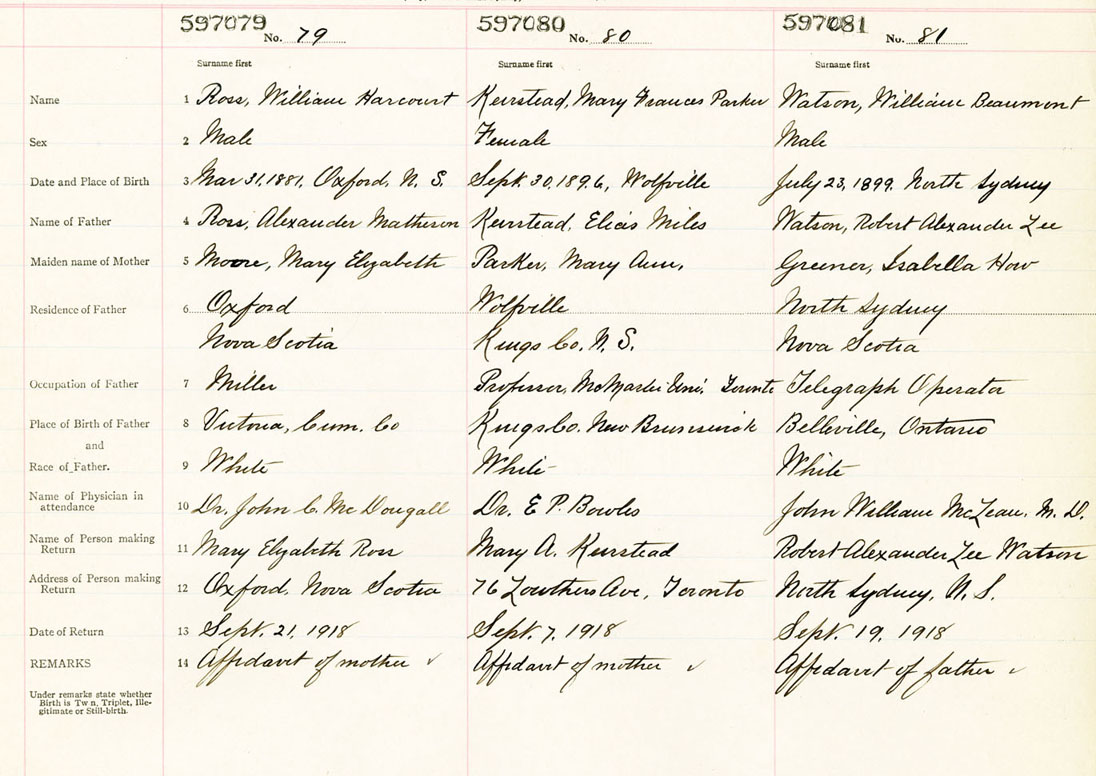 597079 No. 79 597080 No. 80 597081 No. 81
Surname first Surname first Surname first
Name 1 Ross, William Harcourt Keirstead, Mary Frances Parker Watson, William Beaumont
Sex 2 Male Female Male
Date and Place of Birth 3 Mar 31, 1881, Oxford, N. S. Sept. 30, 1896, Wolfville July 23, 1899. North Sydney
Name of Father 4 Ross, Alexander Matheson Keirstead, Elias Miles Watson, Robert Alexander Lee
Maiden name of Mother 5 Moore, Mary Elizabeth Parker, Mary Ann, Greener, Isabella How
Residence of Father 6 Oxford Wolfville North Sydney
Nova Scotia Kings Co. N. S. Nova Scotia
Occupation of Father 7 Miller Professor, McMaster Uni. Toronto Telegraph Operator
Place of Birth of Father 8 Victoria, Cum. Co Kings Co. New Brunswick Belleville, Ontario
and
Race of Father. 9 White White White
Name of Physician in
attendance 10 Dr. John C. McDougall Dr. E P. Bowles John William McLean, M. D.
Name of Person making
Return 11 Mary Elizabeth Ross Mary A. Keirstead Robert Alexander Lee Watson
Address of Person making
Return 12 Oxford, Nova Scotia 76 Lowther Ave, Toronto North Sydney, N. S.
Date of Return 13 Sept. 21, 1918 Sept. 7, 1918 Sept. 19, 1918
REMARKS 14 Affidavit of mother ✓ Affidavit of mother ✓ Affidavit of father ✓
Under remarks state whether
Birth is Tw n, Triplet, Ille-
gitimate or Still-birth.